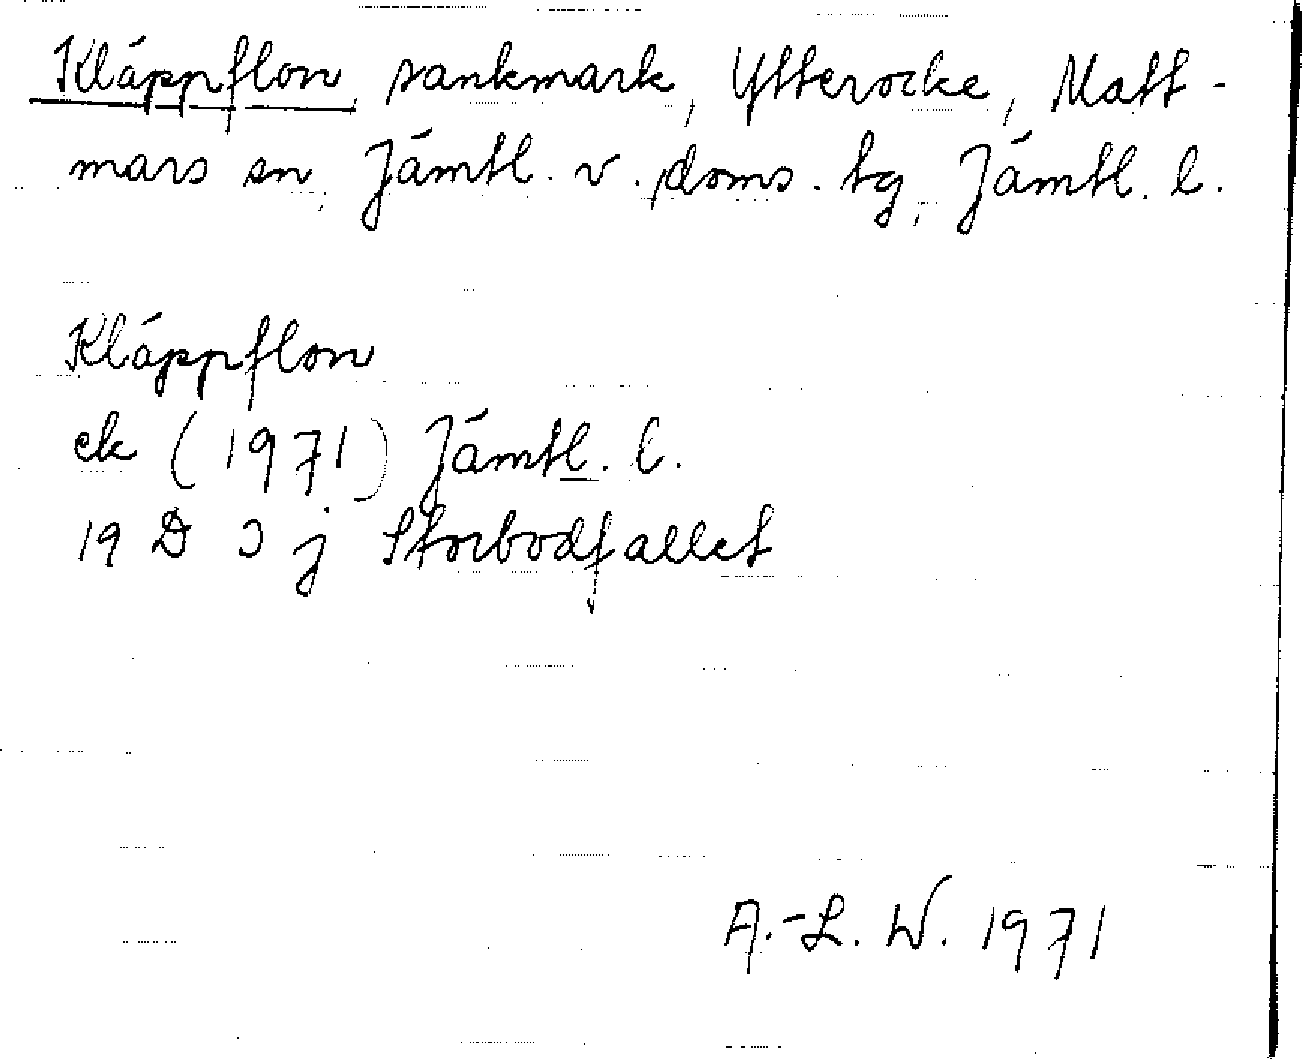 Kläppflon, sankmark, Ytterocke, Matt-
mars sn, Jämtl. v. doms. tg, Jämtl. l.
Kläppflon
ek (1971) Jämtl. l.
19 D 3 j Storbodfallet
A.-L. W. 1971